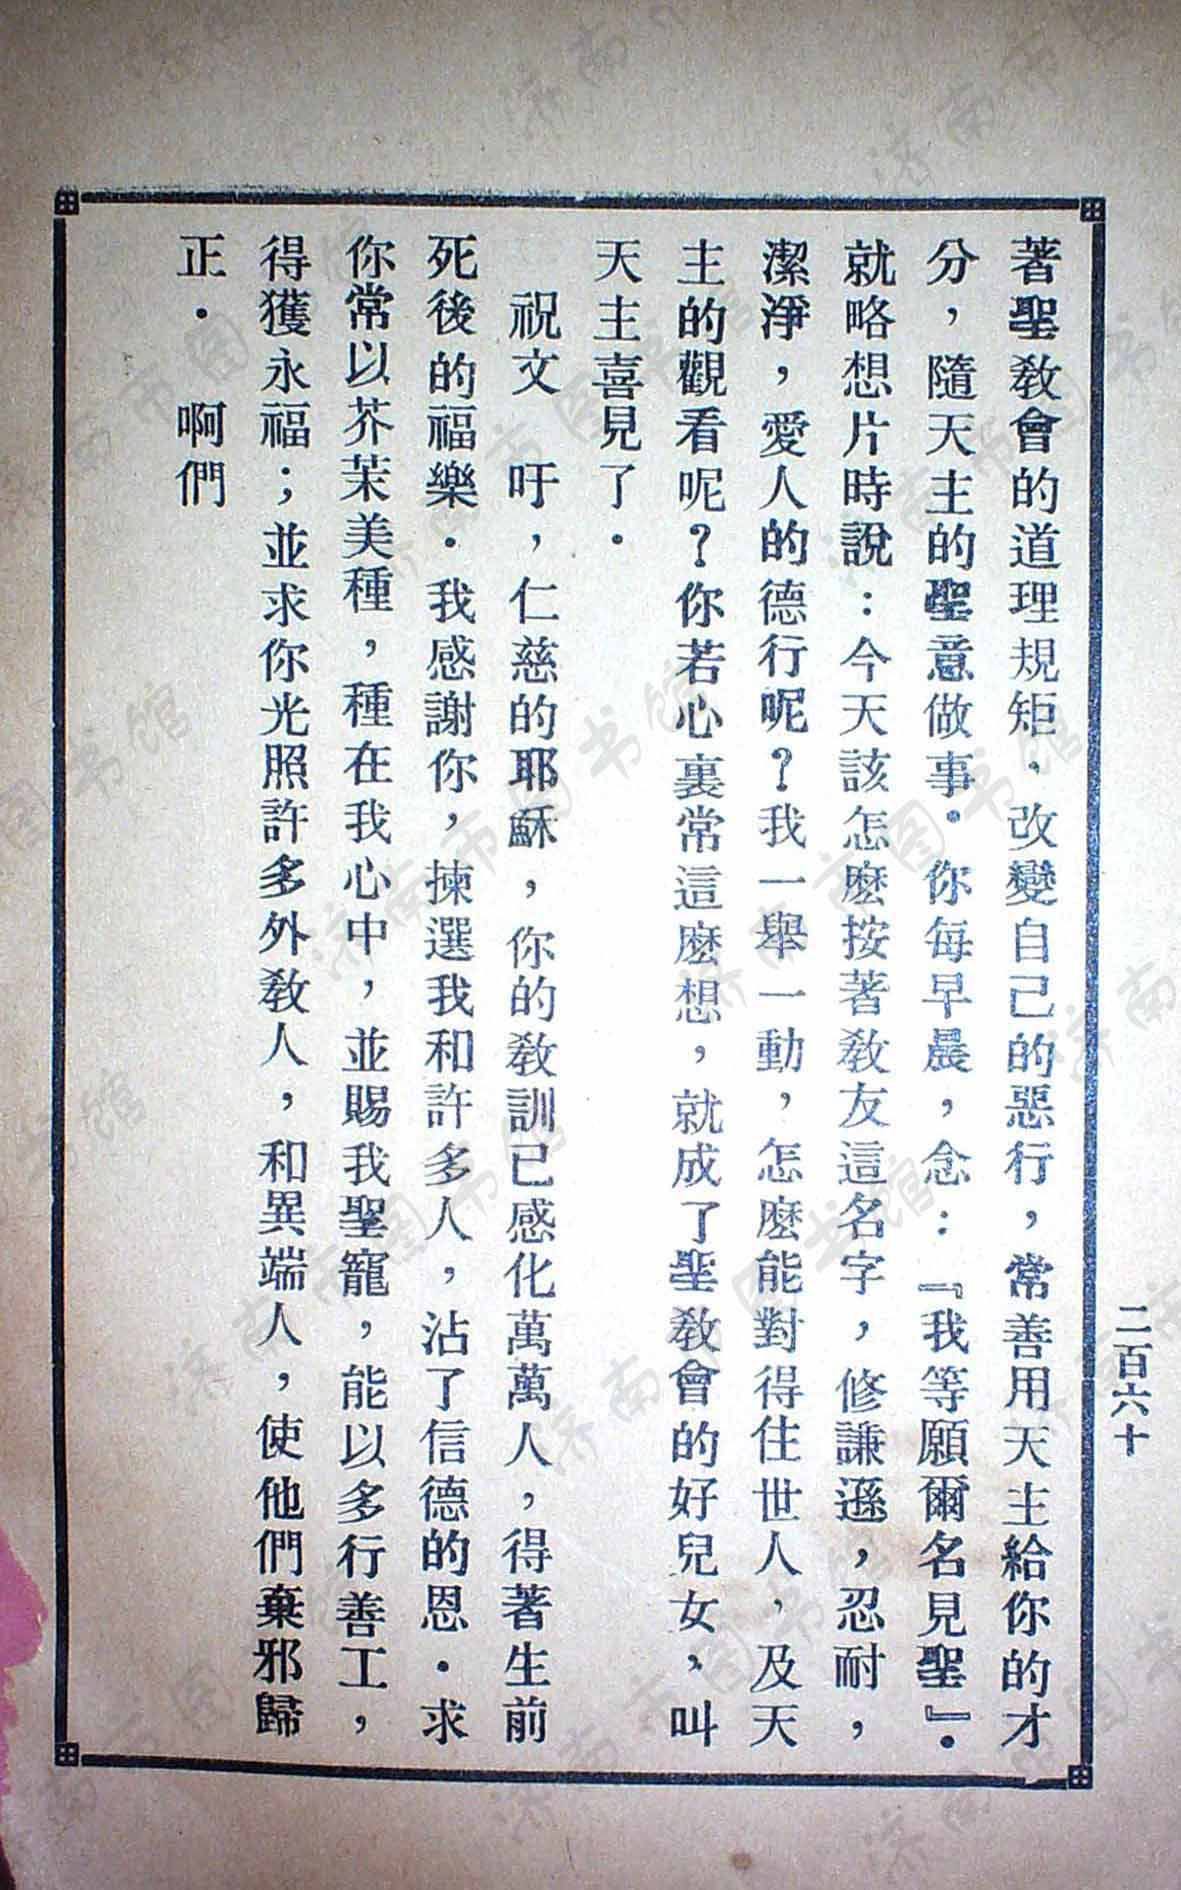 著聖敎會的道理規矩，改變自己的惡行，常善用天主給你的才
分，隨天主的聖意做事．你每早晨，念：『我等願爾名見聖』．
就略想片時說：今天該怎麽按著敎友這名字，修謙遜，忍耐，
潔淨，愛人的德行呢？我一舉一動，怎麽能對得住世人，及天
主的觀看呢？你若心裏常這麽想，就成了聖敎會的好兒女，叫
天主喜見了．
祝文　吁，仁慈的耶穌，你的敎訓已感化萬萬人，得著生前
死後的福樂．我感謝你，揀選我和許多人，沾了信德的恩．求
你常以芥茉美種，種在我心中，並賜我聖寵，能以多行善工，
得獲永福；並求你光照許多外敎人，和異端人，使他們棄邪歸
正．　啊們
二百六十
济南市图书馆